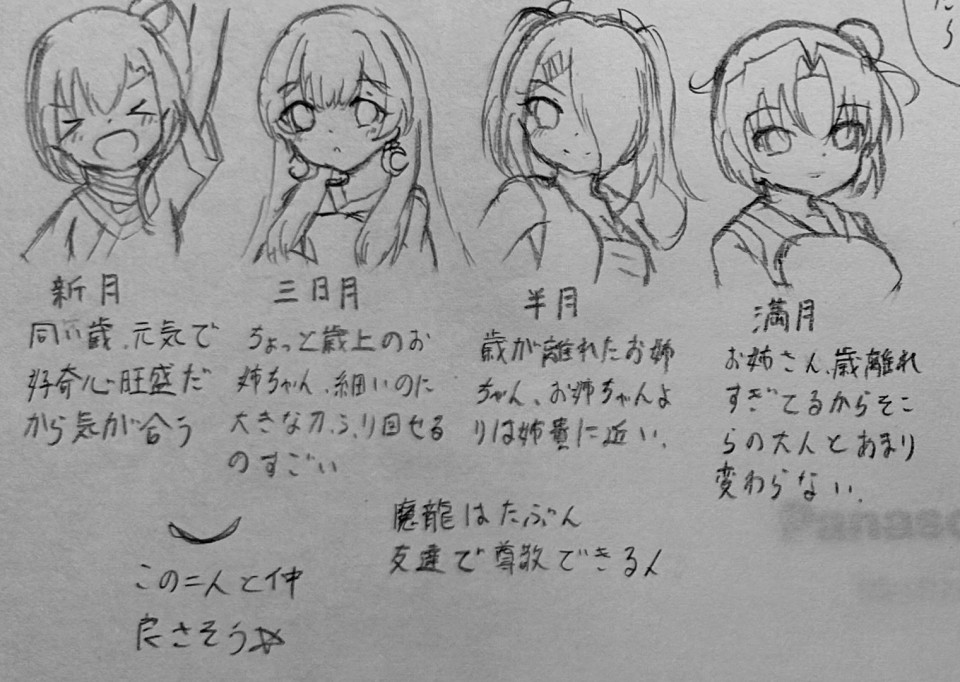 たら
新月
同い歳、元気で
好奇心旺盛だ
から気が合う
三日月
ちょっと歳上のお
姉ちゃん、細いのに
大きな刀ふり回せる
のすごい
半月
歳が離れたお姉
ちゃん、お姉ちゃんよ
りは姉貴に近い、
満月
お姉さん、歳離れ
すぎてるからそこ
らの大人とあまり
変わらない、
この二人と仲
良さそう
魔龍はたぶん
友達で尊敬できる人
Panaso